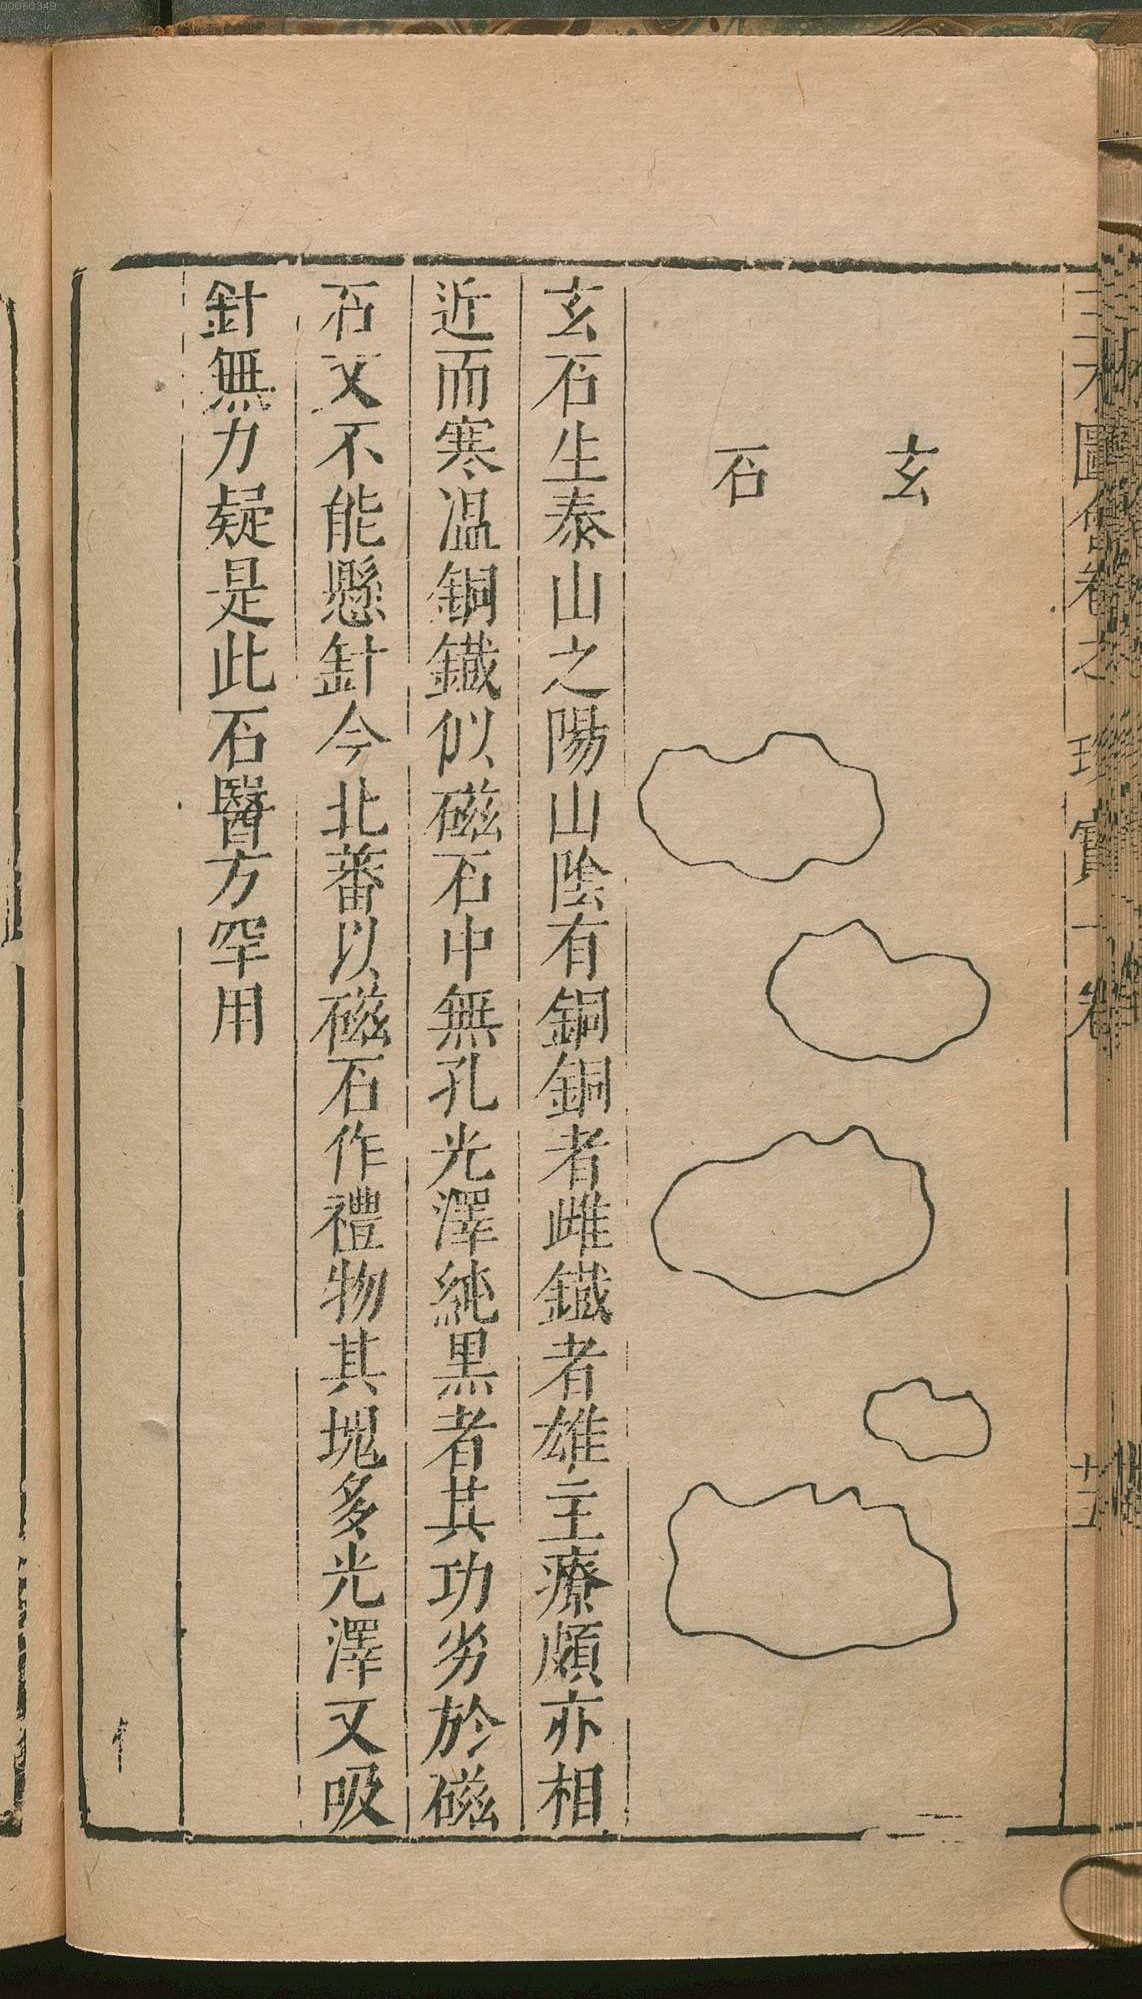 玄石
玄石生泰山之陽山陰有銅銅者雌鐵者雄主療頗亦相
近而寒温銅鐵似磁石中無孔光澤純黒者其功劣於磁
石又不能懸針今北蕃以磁石作禮物其塊多光澤又吸
針無力疑是此石醫方罕用
00060349